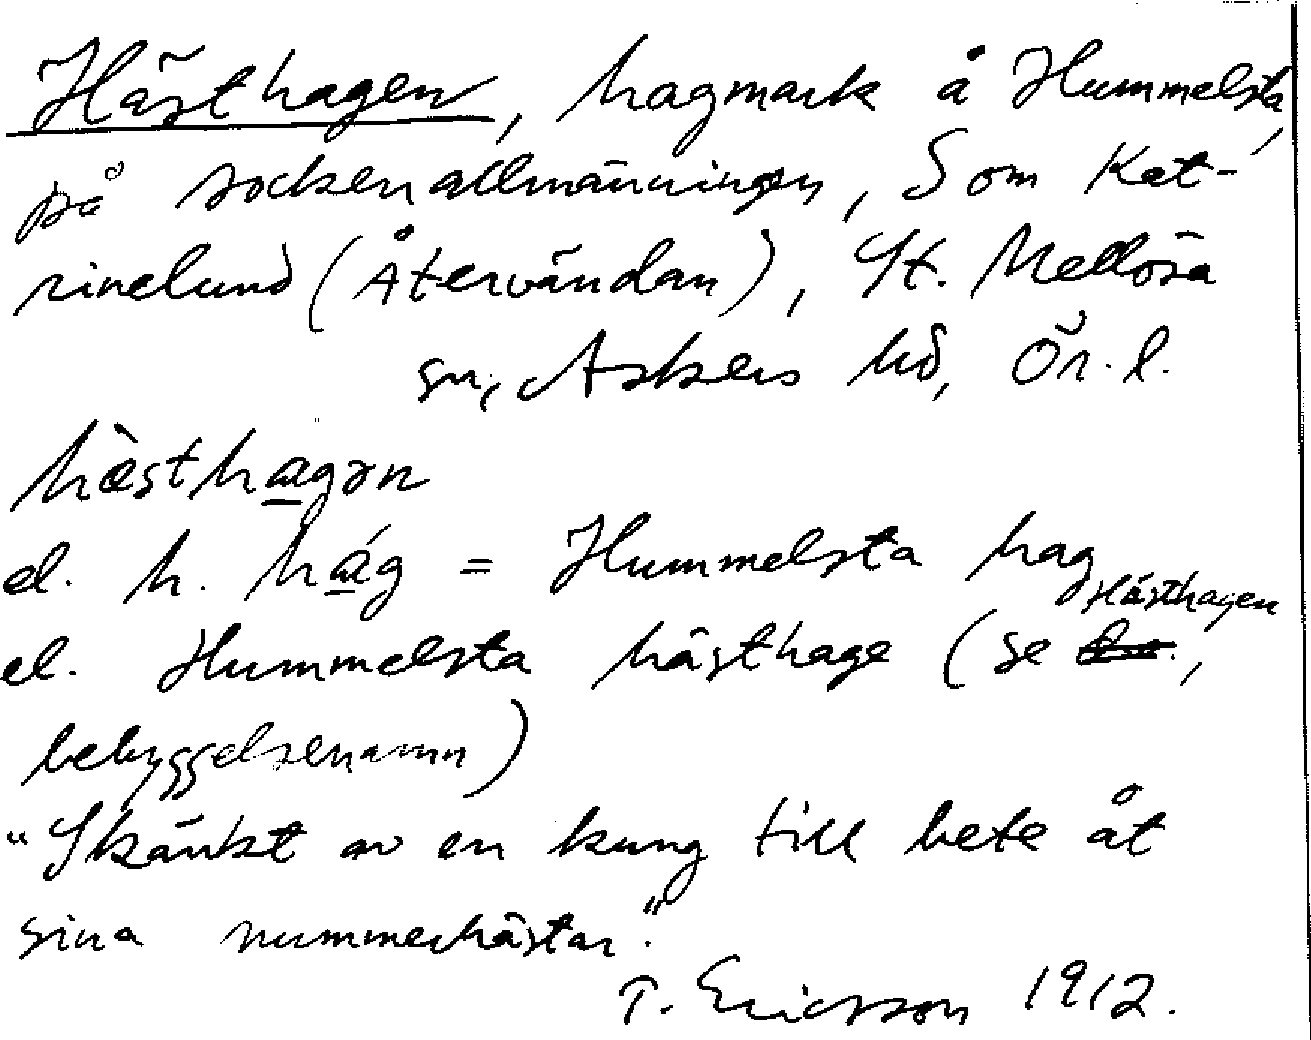 Hästhagen, hagmark å Hummelsta,
på sockenallmänningen, Som Kat-
rinelund (Återvändan), St. Mellösa
sn, Askers hd, Ör. l.
hæ̀sthagən
el. h. hág = Hummelsta hag
el. Hummelsta hästhage (se Hästhagen,
bebyggelsenamn)
"Skänkt av en kung till bete åt
sina nummerhästar."
T. Ericsson 1912.